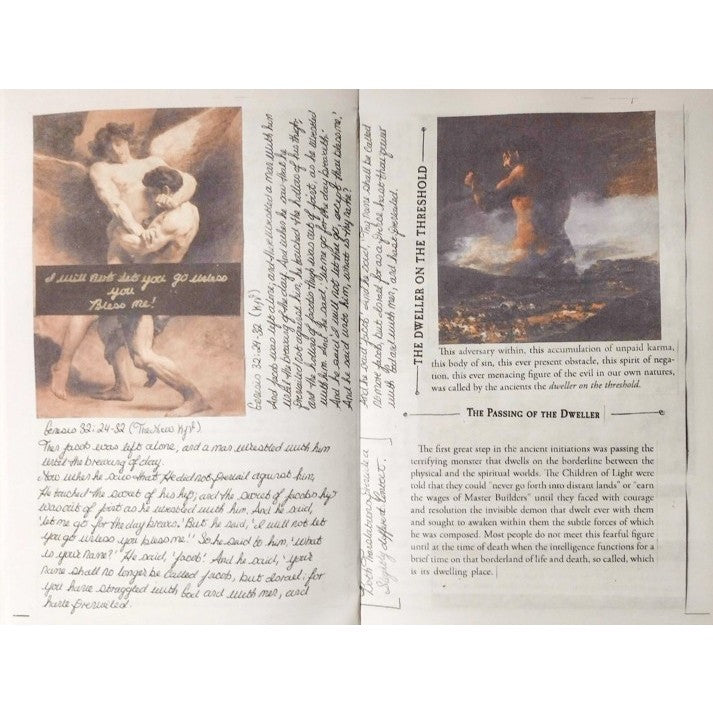 I will not let you go unless
you
Bless me!
Genesis 32:24-32 (The New KJV)
Then Jacob was left alone, and a man wrestled with him
until the breaking of day.
Now when he saw that He did not prevail against him,
He touched the socket of his hip, and the socket of Jacobs hip
was out of joint as he wrestled with him. And he said,
'let me go for the day breaks.' But he said, 'I will not let
you go unless you bless me!' So he said to him, 'What
is your name?' He said, 'Jacob'! And he said, 'your
name shall no longer be called Jacob, but Israel; for
you have struggled with God and with men, and
have prevailed.
Genesis 32:24-32 (KJV)
And Jacob was left alone, and there wrestled a man with him
until the breaking of the day. And when he saw that he
prevailed not against him, he touched the hollow of his thigh,
and the hollow of Jacobs thigh was out of joint, as he wrestled
with him. And he said, let me go, for the day breaketh.
And he said I will not let thee go, except thou bless me.'
And he said unto him, what is thy name?
And he said Jacob. And he said, Thy name shall be called
no more Jacob, but Israel: for as a prince hast thou power
with God and with men, and hast prevailed.
Both Translations provide a
slightly different Context.
THE DWELLER ON THE THRESHOLD
This adversary within, this accumulation of unpaid karma,
this body of sin, this ever present obstacle, this spirit of nega-
tion, this ever menacing figure of the evil in our own natures,
was called by the ancients the dweller on the threshold.
THE PASSING OF THE DWELLER
The first great step in the ancient initiations was passing the
terrifying monster that dwells on the borderline between the
physical and the spiritual worlds. The Children of Light were
told that they could "never go forth into distant lands" or "earn
the wages of Master Builders" until they faced with courage
and resolution the invisible demon that dwelt ever with them
and sought to awaken within them the subtle forces of which
he was composed. Most people do not meet this fearful figure
until at the time of death when the intelligence functions for a
brief time on that borderland of life and death, so called, which
is its dwelling place.